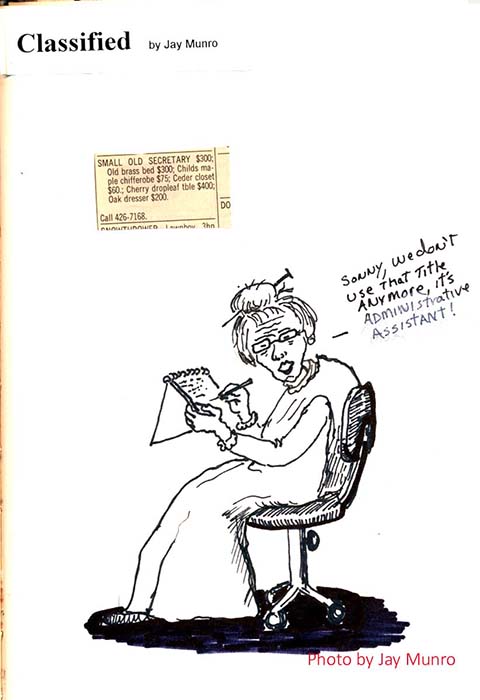 Classified by Jay Munro
SMALL OLD SECRETARY $300;
Old brass bed $300; Childs ma-
ple chifferobe $75; Ceder closet
$60.; Cherry dropleaf tble $400;
Oak dresser $200.
Call 426-7168.
DO
SONNY, we don't
use that title
ANYmore, it's
ADMINISTRATIVE
ASSISTANT!
Photo by Jay Munro